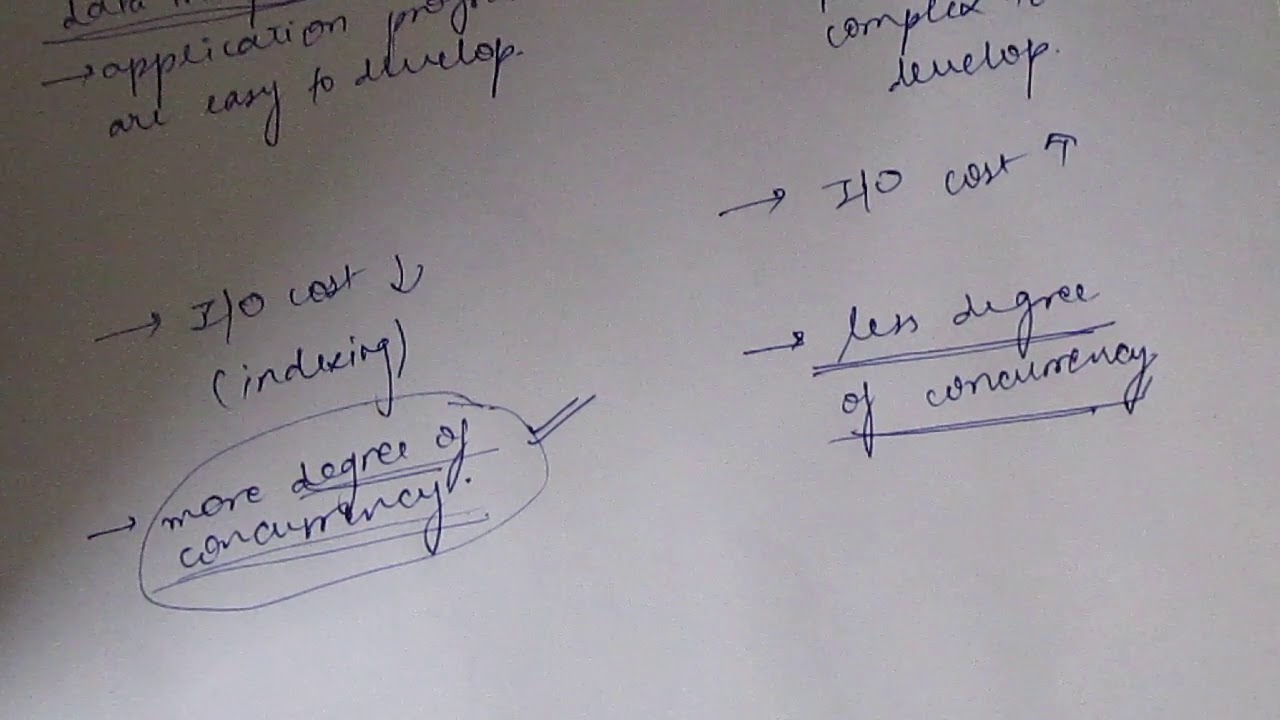 data
→ application
are easy to develop.
→ I/O cost ↓
(indexing)
→ more degree of
concurrency.
complex
develop.
→ I/O cost ↑
→ less degree
of concurrency